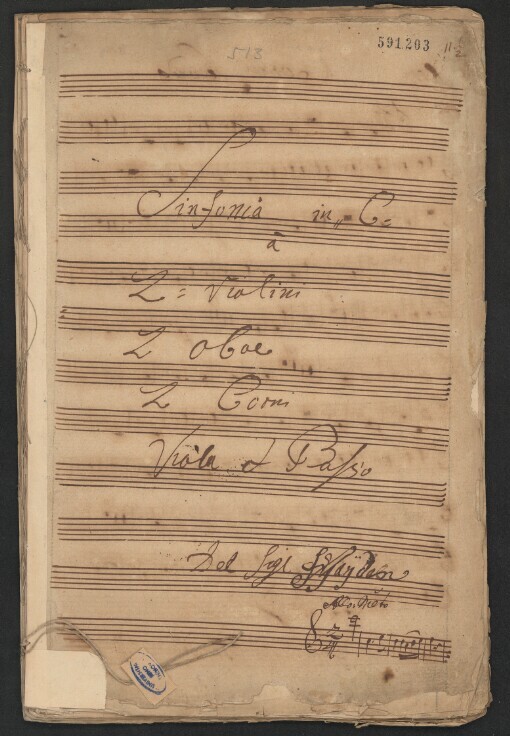 513
591203
Sinfonia in C
à
2 Violini
2 Oboe
2 Corni
Viola et Basso
Del Sigl Hayden